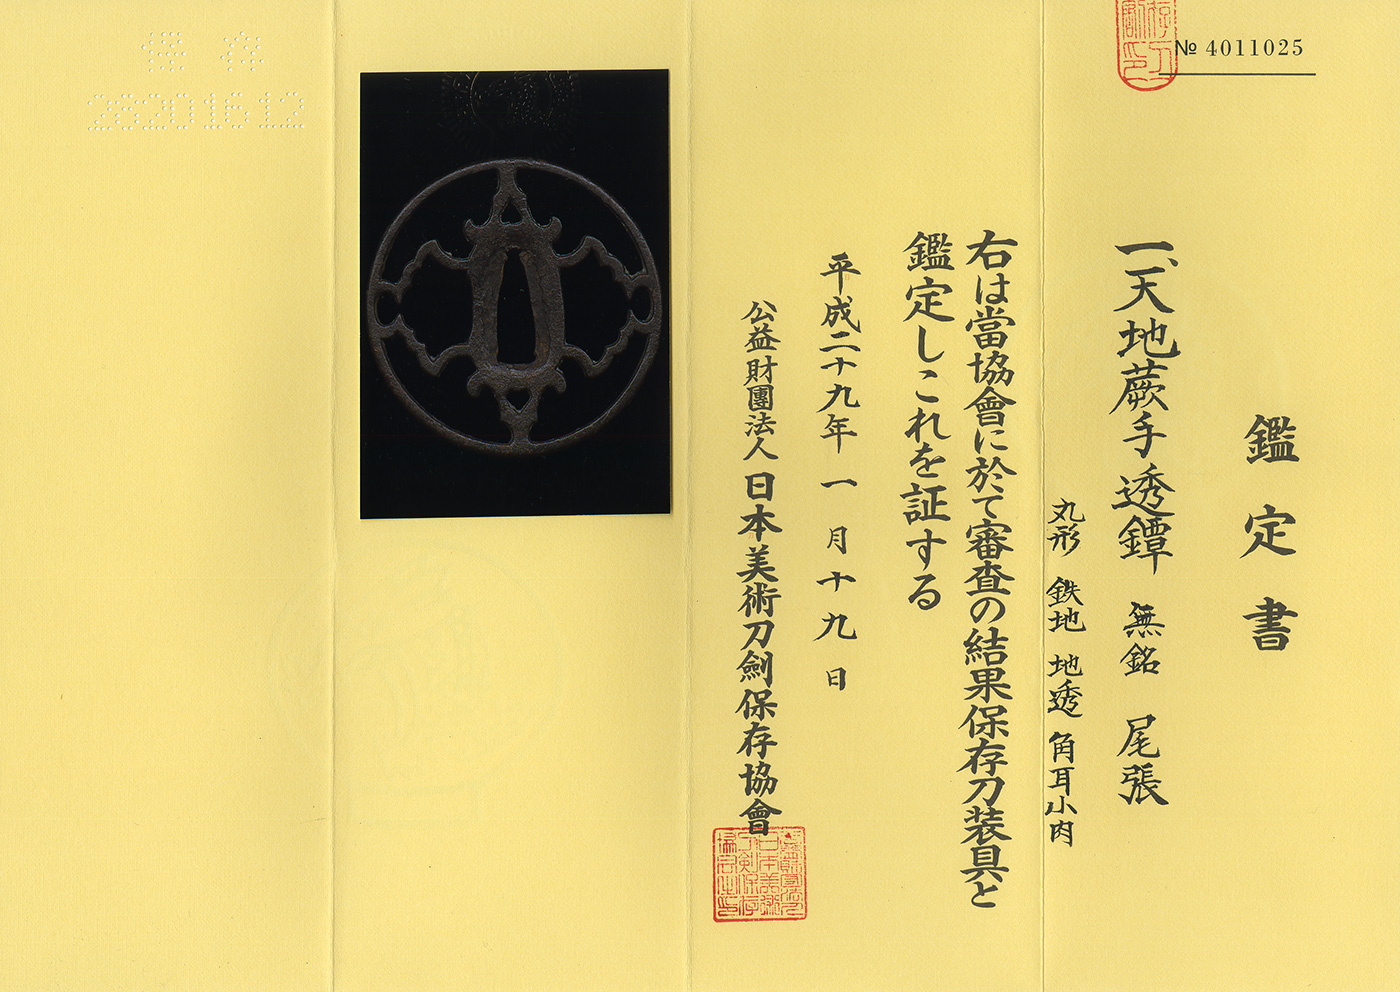 № 4011025
鑑定書
一、天地蕨手透鐔 無銘 尾張
丸形 鉄地 地透 角耳小肉
右は當協會に於て審査の結果保存刀装具と
鑑定しこれを証する
平成二十九年一月十九日
公益財團法人日本美術刀劍保存協會
保存
28201612